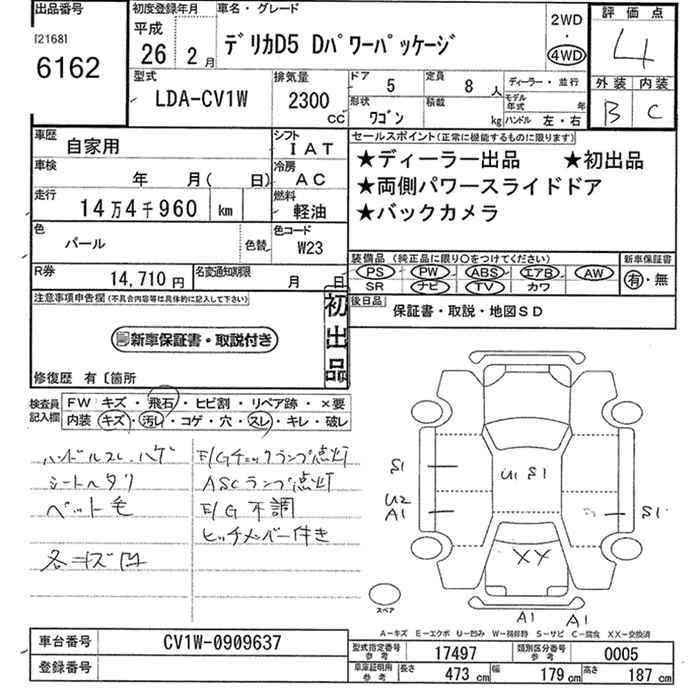 出品番号
[2168]
6162
初度登録年月
平成
26 2月
車名・グレード
デリカD5 Dパワーパッケージ
2WD
・
4WD
評価点
4
外装 内装
B C
型式
LDA-CV1W
排気量
2300
cc
ドア
5
定員
8人
ディーラー・並行
形状
ワゴン
積載
kg
モデル年式
年
ハンドル 左・右
車歴
自家用
シフト
IAT
車検
年 月( 日)
冷房
AC
走行
14万4千960 km
燃料
軽油
色
パール
色替
色コード
W23
R券
14,710円
名変通知期限
月 日
セールスポイント(正常に機能するものに限ります)
★ディーラー出品 ★初出品
★両側パワースライドドア
★バックカメラ
装備品(純正品に限り○をつけてください)
PS PW ABS エアB AW
SR ナビ TV カワ
新車保証書
有・無
後日品
保証書・取説・地図SD
注意事項申告欄(不具合内容等は具体的に記入して下さい)
新車保証書・取説付き
初出品
修復歴 有〔箇所
検査員記入欄
FW キズ・飛石・ヒビ割・リペア跡・×要
内装 キズ・汚レ・コゲ・穴・スレ・キレ・破レ
ハンドルスレ、ハゲ
シートヘタリ
ペット毛
各キズ凹
E/Gチェックランプ点灯
ASCランプ点灯
E/G不調
ヒッチメンバー付き
S1
U1 S1
U2
A1
S1
XX
A1
A1
スペア
A-キズ E-エクボ U-凹み W-補修跡 S-サビ C-腐食 XX-交換済
車台番号
CV1W-0909637
登録番号
型式指定番号
参考
17497
類別区分番号
参考
0005
車庫証明用
参考
長さ
473 cm
幅
179 cm
高さ
187 cm